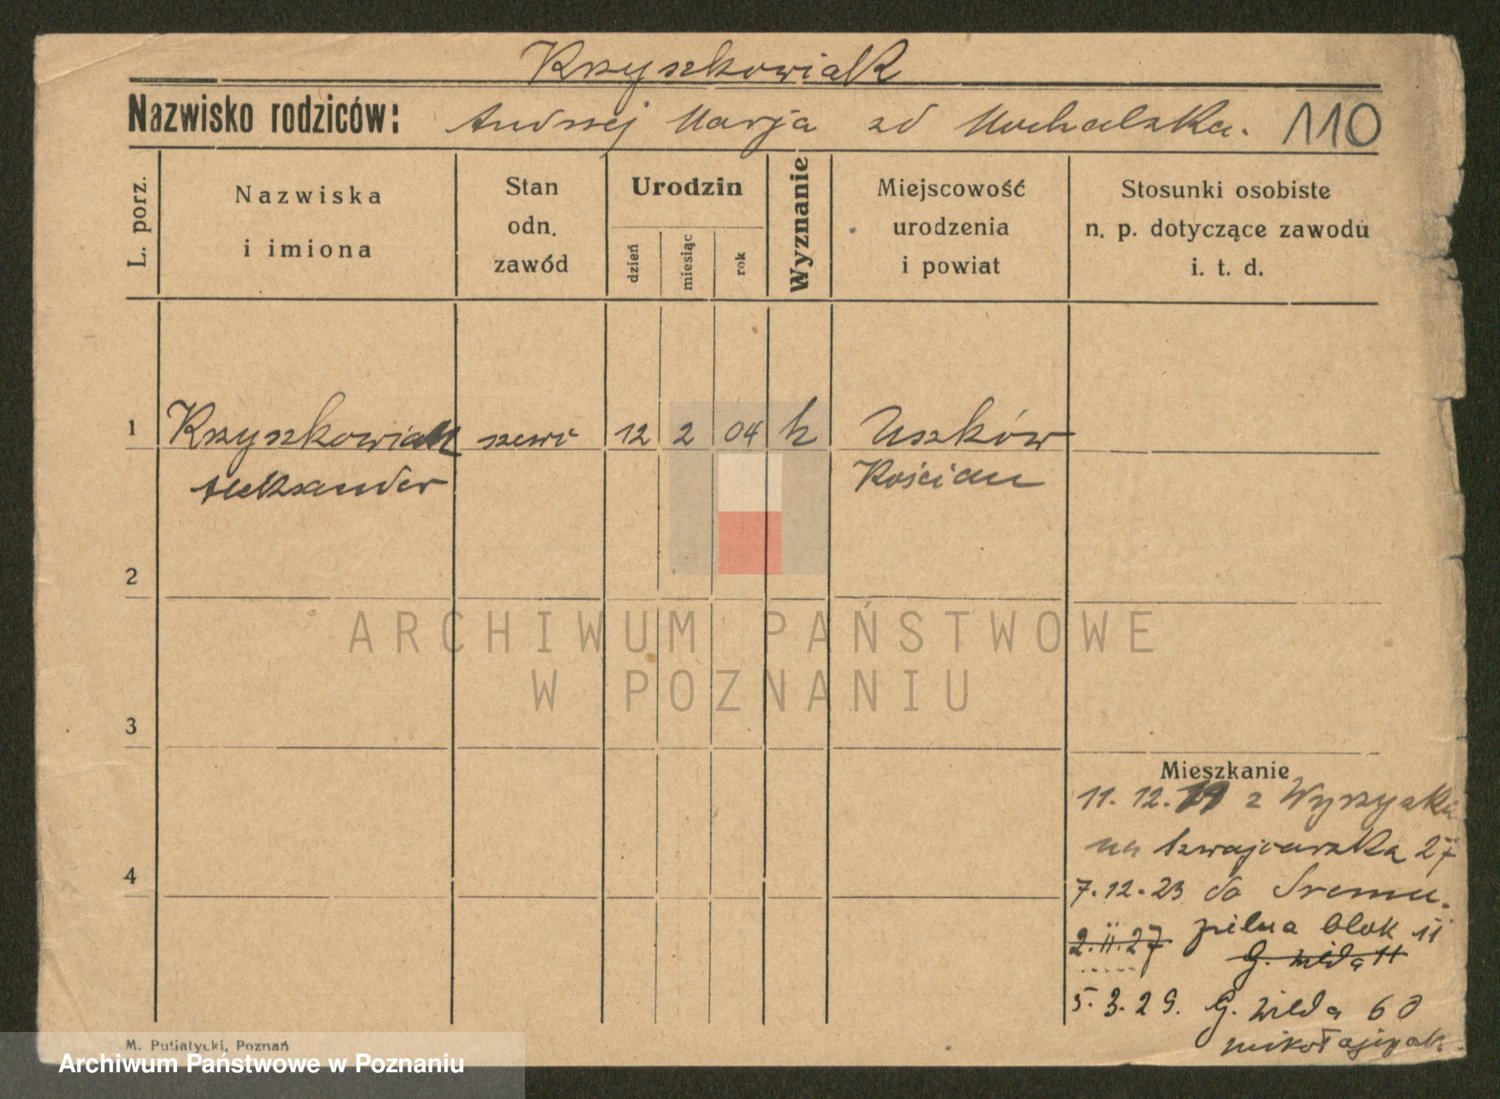 Krzyszkowiak
Nazwisko rodziców: Andrzej Marja zd Mochalska. 110
L. porz.
Nazwiska
i imiona
Stan
odn.
zawód
Urodzin
dzień
miesiąc
rok
Wyznanie
Miejscowość
urodzenia
i powiat
Stosunki osobiste
n. p. dotyczące zawodu
i. t. d.
1 Krzyszkowiak szewc 12 2 04 k Uszków
Aleksander Kościan
2
ARCHIWUM PAŃSTWOWE
W POZNANIU
3
Mieszkanie
11. 12. z Wyrzyska
na Szwajcarska 27
4
7. 12. 23 do Śremu.
2. II. 27 pilna blok 11
G. wilda 11
5. 3. 29. G. Wilda 60
mikołajczak.
M. Putiatycki, Poznań
Archiwum Państwowe w Poznaniu